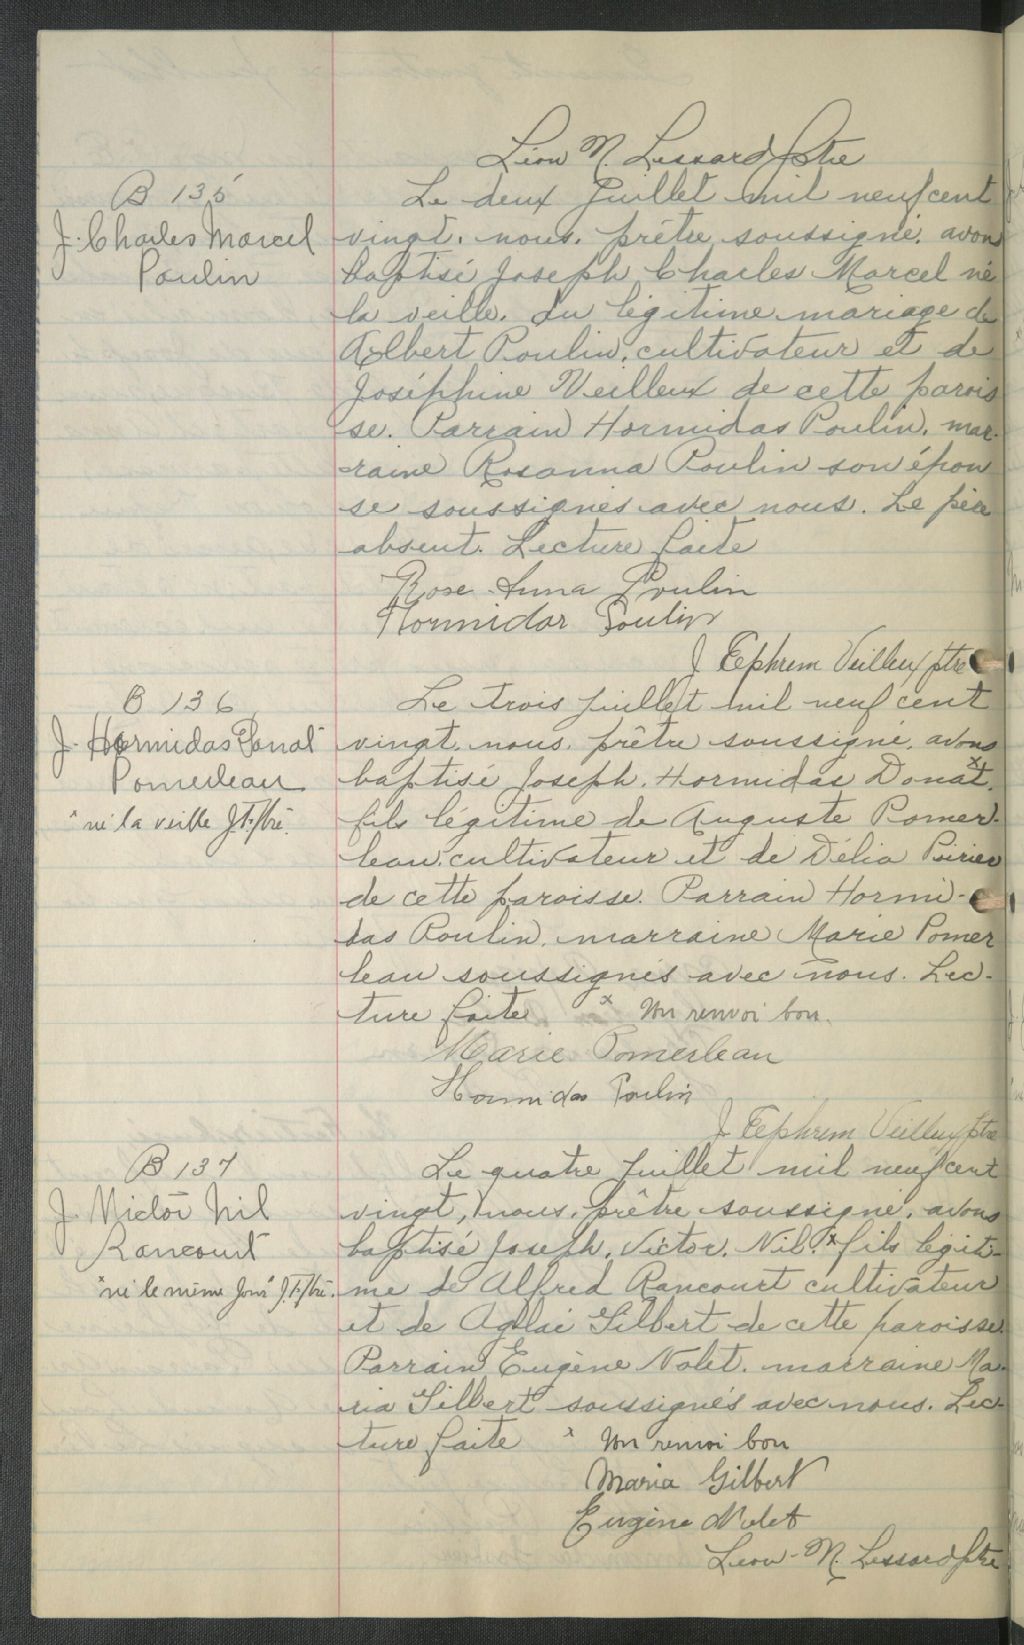 Léon N. Lessard ptre
B 135
J. Charles Marcel
Poulin
Le deux Juillet mil neuf cent
vingt, nous, prêtre soussigné, avons
baptisé Joseph Charles Marcel né
la veille, du légitime mariage de
Albert Poulin, cultivateur et de
Joséphine Veilleux de cette parois
se. Parrain Hormidas Poulin, mar-
raine Rosanna Poulin son épou
se soussignés avec nous. Le père
absent. Lecture faite
Rose-Anna Poulin
Hormidas Poulin
J Ephrem Veilleux ptre
B 136
J. Hormidas Donat
Pomerleau
x né la veille J.E. ptre.
Le trois juillet mil neuf cent
vingt, nous, prêtre soussigné, avons
baptisé Joseph, Hormidas Donat, x
fils légitime de Auguste Pomer-
leau, cultivateur et de Délia Poirier
de cette paroisse. Parrain Hormi-
das Poulin, marraine Marie Pomer
leau soussignés avec nous. Lec-
ture faite x Un renvoi bon.
Marie Pomerleau
Hormidas Poulin
J Ephrem Veilleux ptre
B 137
J. Victor Nil
Rancourt
x "né le même jour" J.E. ptre.
Le quatre juillet mil neuf cent
vingt, nous, prêtre soussigné, avons
baptisé Joseph, Victor, Nil, x fils légiti-
me de Alfred Rancourt cultivateur
et de Aglaé Gilbert de cette paroisse.
Parrain Eugène Nolet, marraine Ma-
ria Gilbert soussignés avec nous. Lec-
ture faite x Un renvoi bon
Maria Gilbert
Eugène Nolet
Léon-N. Lessard ptre